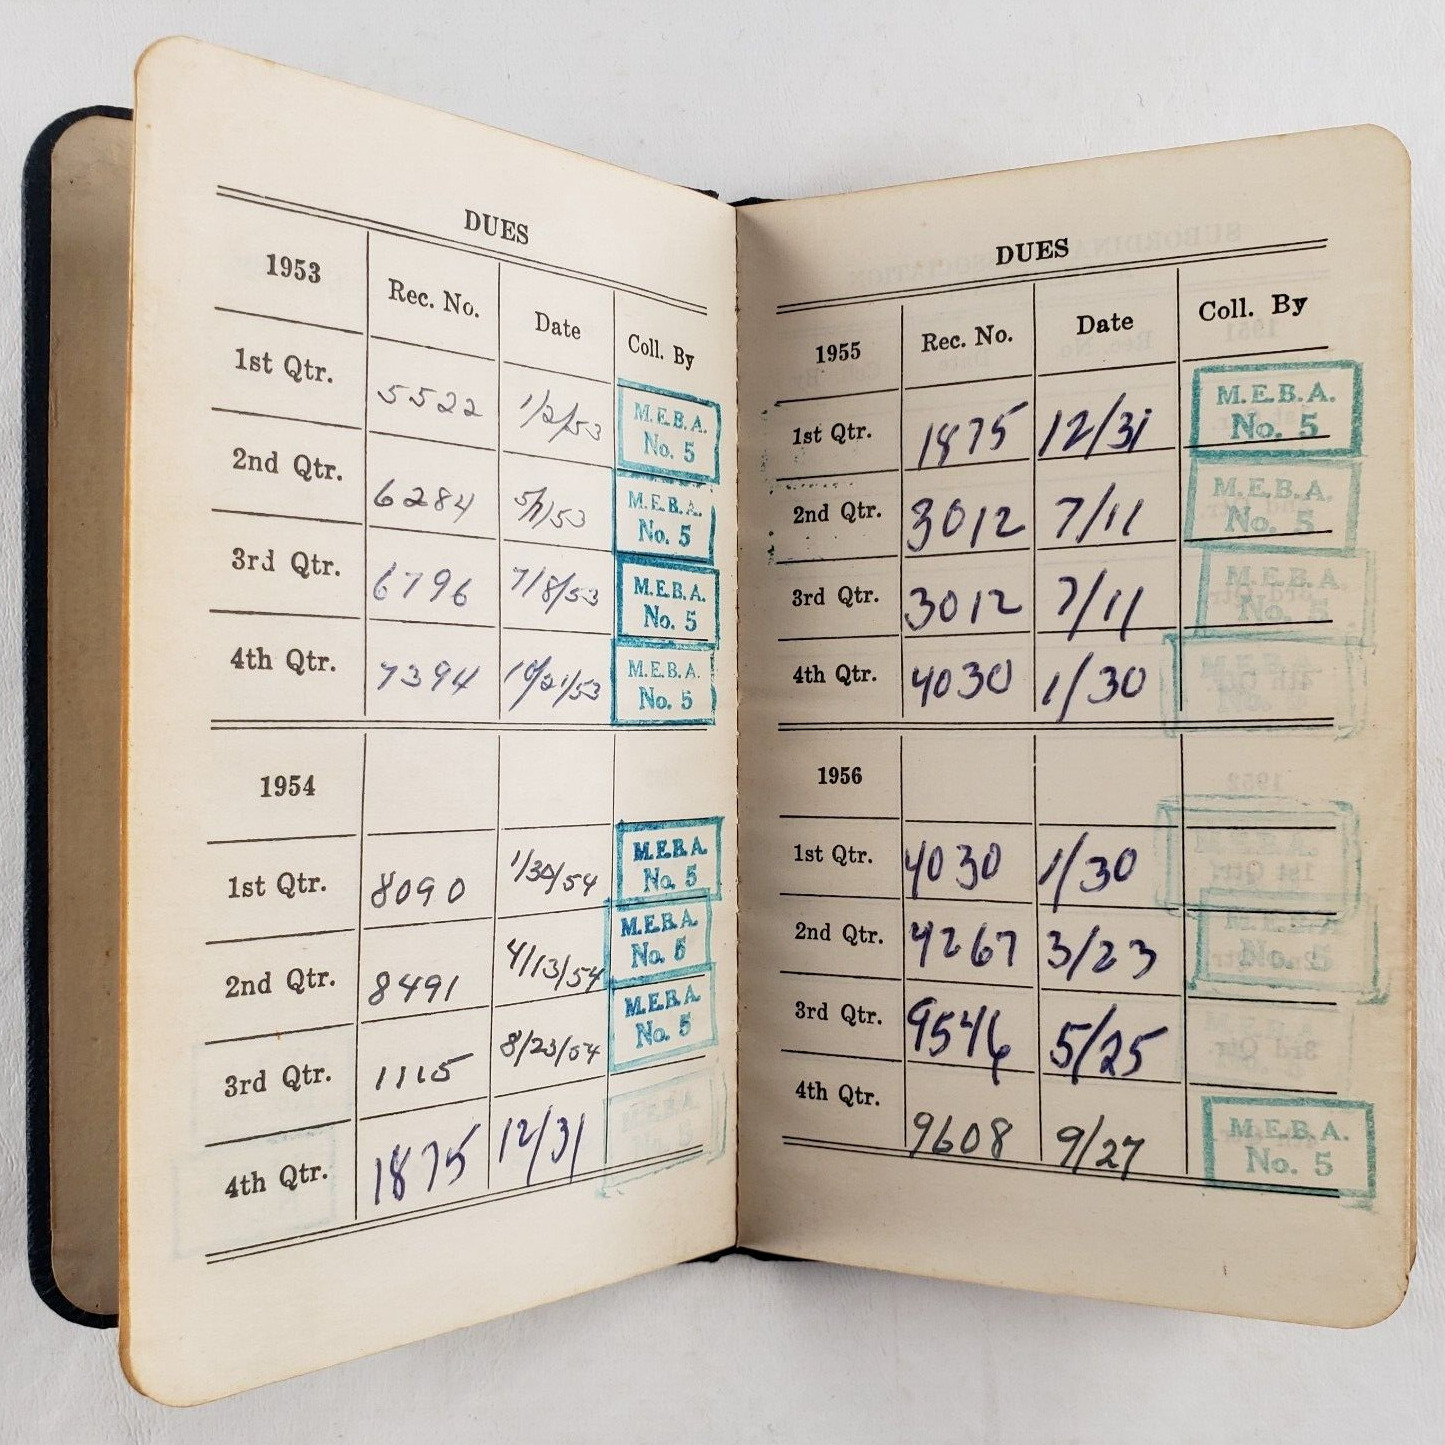 DUES
1953 Rec. No. Date Coll. By
1st Qtr. 5522 1/2/53 M.E.B.A. No. 5
2nd Qtr. 6284 5/1/53 M.E.B.A. No. 5
3rd Qtr. 6796 7/8/53 M.E.B.A. No. 5
4th Qtr. 7394 10/21/53 M.E.B.A. No. 5
1954
1st Qtr. 8090 1/30/54 M.E.B.A. No. 5
2nd Qtr. 8491 4/13/54 M.E.B.A. No. 5
3rd Qtr. 1115 8/23/54 M.E.B.A. No. 5
4th Qtr. 1875 12/31 M.E.B.A. No. 5
DUES
1955 Rec. No. Date Coll. By
1st Qtr. 1875 12/31 M.E.B.A. No. 5
2nd Qtr. 3012 7/11 M.E.B.A. No. 5
3rd Qtr. 3012 7/11 M.E.B.A. No. 5
4th Qtr. 4030 1/30
1956
1st Qtr. 4030 1/30
2nd Qtr. 4267 3/23 M.E.B.A. No. 5
3rd Qtr. 9546 5/25
4th Qtr. 9608 9/27 M.E.B.A. No. 5